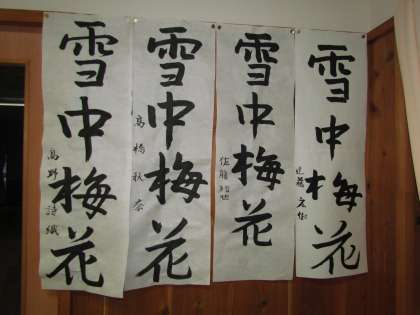 雪中梅花
雪中梅花
佐藤
雪中梅花
高橋秋奈
雪中梅花
高野詩織